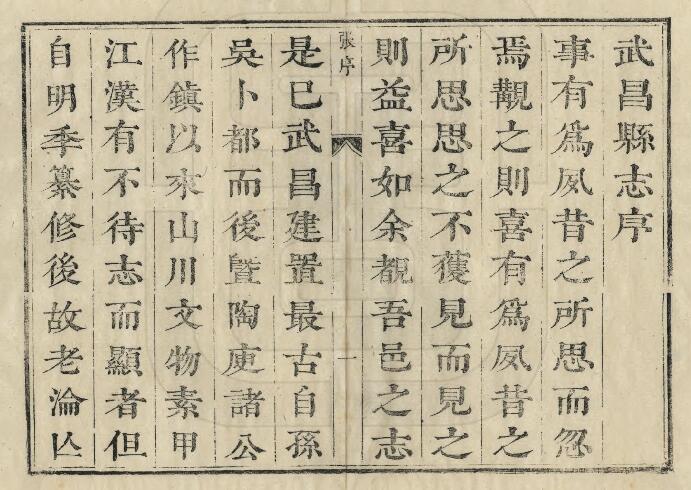 武昌縣志序
事有爲夙昔之所思而忽
焉覯之則喜有爲夙昔之
所思思之不獲見而見之
則益喜如余覩吾邑之志
張序
一
是已武昌建置最古自孫
吳卜都而後曁陶庾諸公
作鎮以來山川文物素甲
江漢有不待志而顯者但
自明季纂修後故老淪亾